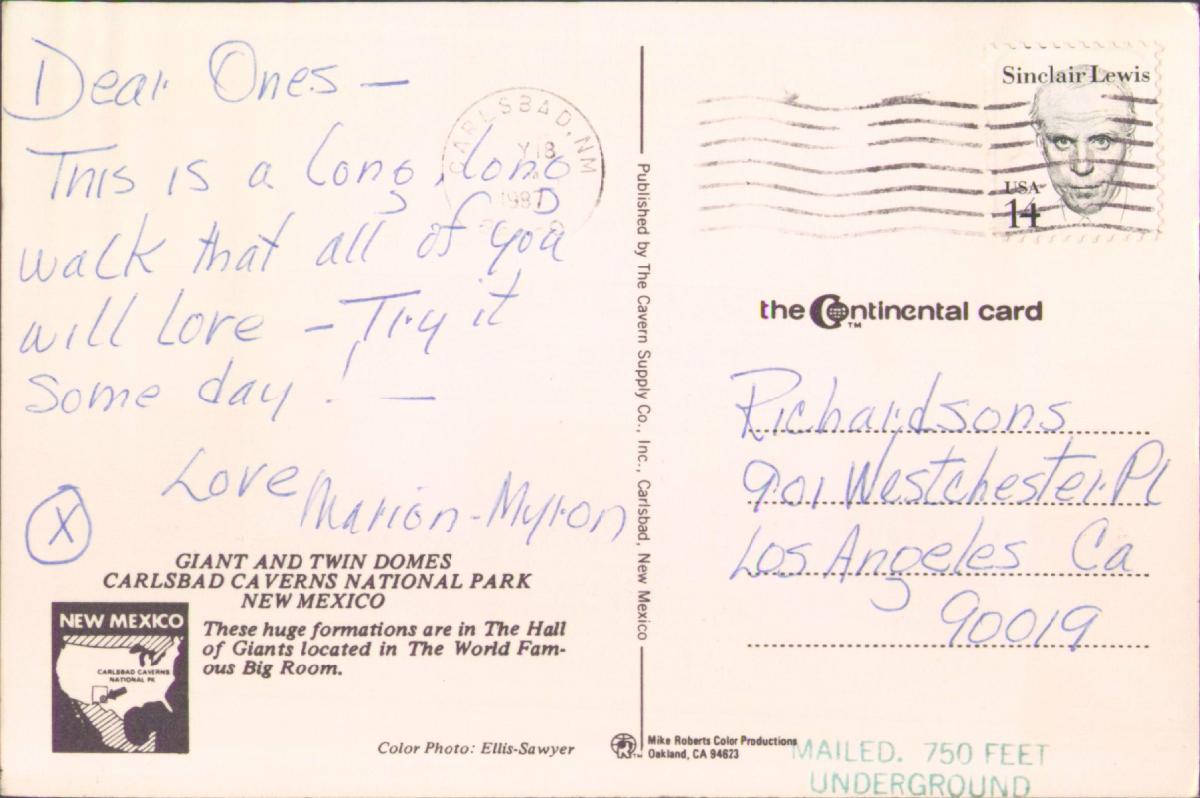 Dear Ones —
This is a long, long
walk that all of you
will love – Try it
some day! —
Love Marion-Myron
X
GIANT AND TWIN DOMES
CARLSBAD CAVERNS NATIONAL PARK
NEW MEXICO
These huge formations are in The Hall
of Giants located in The World Fam-
ous Big Room.
NEW MEXICO
CARLSBAD CAVERNS
NATIONAL PK
Color Photo: Ellis-Sawyer
Published by The Cavern Supply Co., Inc., Carlsbad, New Mexico
Mike Roberts Color Productions
Oakland, CA 94623
CARLSBAD, NM
18
1987
Sinclair Lewis
USA
14
the Continental card
TM
Richardsons
901 Westchester Pl
Los Angeles Ca
90019
MAILED. 750 FEET
UNDERGROUND